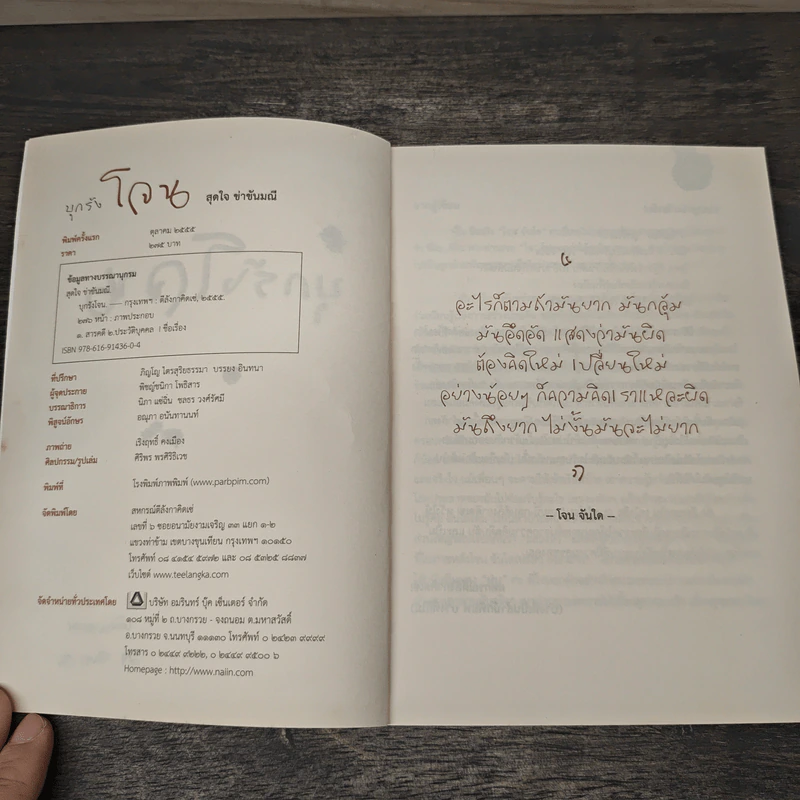 บุกรัง โจน สุดใจ ข่าขันมณี
พิมพ์ครั้งแรก ตุลาคม ๒๕๕๕
ราคา ๒๗๕ บาท
ข้อมูลทางบรรณานุกรม
สุดใจ ข่าขันมณี
บุกรังโจน. –– กรุงเทพฯ : ตีลังกาคิดเช่, ๒๕๕๕.
๒๗๖ หน้า : ภาพประกอบ
๑. สารคดี ๒.ประวัติบุคคล I ชื่อเรื่อง
ISBN 978-616-91436-0-4
ที่ปรึกษา ภิญโญ ไตรสุริยธรรมา บรรยง อินทนา
ผู้จุดประกาย พิชญ์ชนิกา โพธิสาร
บรรณาธิการ นิภา แซ่ฉิ่น ชลธร วงศ์รัศมี
พิสูจน์อักษร อณุภา อนันทานนท์
ภาพถ่าย เริงฤทธิ์ คงเมือง
ศิลปกรรม/รูปเล่ม ศิริพร พรศิริธิเวช
พิมพ์ที่ โรงพิมพ์ภาพพิมพ์ (www.parbpim.com)
จัดพิมพ์โดย สหกรณ์ตีลังกาคิดเช่
เลขที่ ๖ ซอยอนามัยงามเจริญ ๓๓ แยก ๑-๒
แขวงท่าข้าม เขตบางขุนเทียน กรุงเทพฯ ๑๐๑๕๐
โทรศัพท์ ๐๘ ๔๑๕๔ ๕๙๗๒ และ ๐๘ ๕๓๒๕ ๘๘๓๗
เว็บไซต์ www.teelangka.com
จัดจำหน่ายทั่วประเทศโดย บริษัท อมรินทร์ บุ๊ค เซ็นเตอร์ จำกัด
๑๐๘ หมู่ที่ ๒ ถ.บางกรวย - จงถนอม ต.มหาสวัสดิ์
อ.บางกรวย จ.นนทบุรี ๑๑๑๓๐ โทรศัพท์ ๐ ๒๔๒๓ ๙๙๙๙
โทรสาร ๐ ๒๔๔๙ ๙๒๒๒, ๐ ๒๔๔๙ ๙๕๐๐ ๖
Homepage : http://www.naiin.com
อะไรก็ตามถ้ามันยาก มันกลุ้ม
มันอึดอัด แสดงว่ามันผิด
ต้องคิดใหม่ เปลี่ยนใหม่
อย่างน้อยๆ ก็ความคิดเราแหละผิด
มันถึงยาก ไม่งั้นมันจะไม่ยาก
– โจน จันใด –